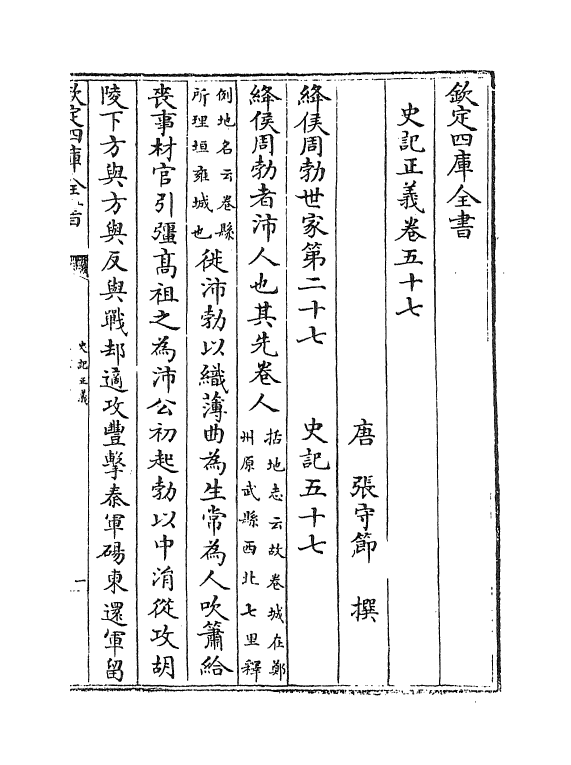 欽定四庫全書
史記正義卷五十七
唐 張守節 撰
絳侯周勃世家第二十七 史記五十七
絳侯周勃者沛人也其先卷人括地志云故卷城在鄭州原武縣西北七里釋
例地名云卷縣所理垣雍城也徙沛勃以織薄曲為生常為人吹簫給
喪事材官引彊高祖之為沛公初起勃以中涓從攻胡
陵下方與方與反與戰却適攻豐擊秦軍碭東還軍留
欽定四庫全書
史記正義
一